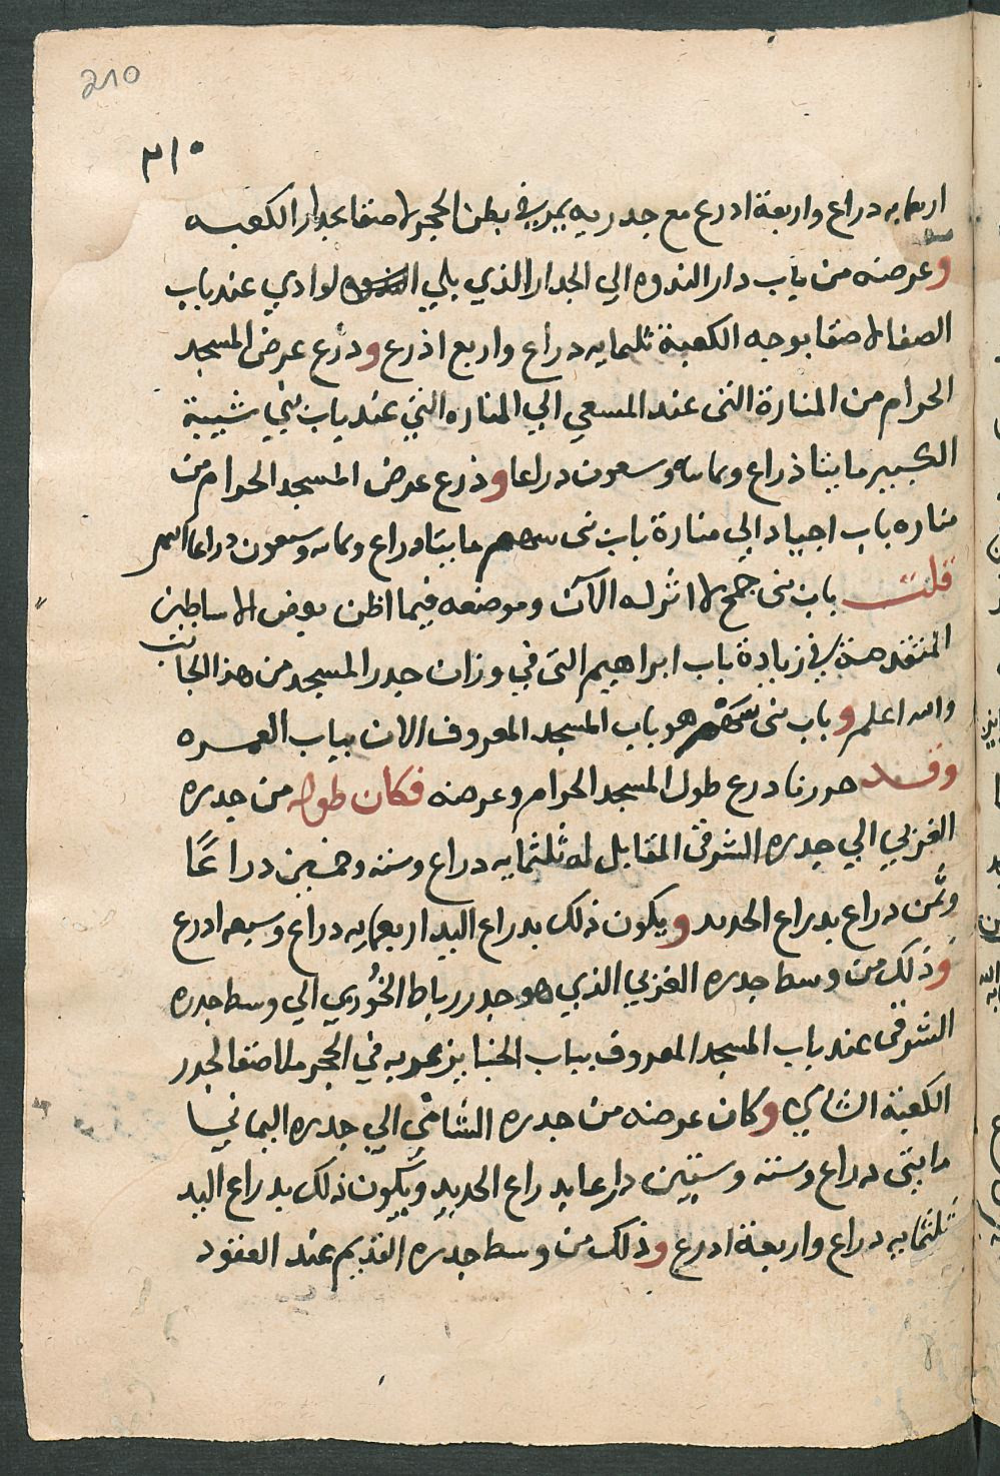 210
٢١٠
اربعمايه دراع واربعة ادرع مع جدريه يمر في بطن الحجر لاصقا بجدار الكعبه
وعرضه من باب دار الندوه الي الجدار الذي يلي الوادي عند باب
الصفا لاصقا بوجه الكعبة ثلثمايه دراع واربع اذرع وذرع عرض المسجد
الحرام من المنارة التى عند المسعي الي المناره التي عند باب بني شيبة
الكبير مايتا ذراع وثمانيه وسبعون دراعا وذرع عرض المسجد الحرام من
مناره باب اجياد الي منارة باب بنى سهم مايتا دراع وثمانيه وسبعون دراعا انتهى
قلت باب بنى جمح لا اثر له الآن وموضعه فيما اظن بعض الاساطين
المتقدمة في زيادة باب ابراهيم التى في وزان جدر المسجد من هذا الجانب
والله اعلم وباب بنى سهم هو باب المسجد المعروف الان بباب العمره
وقد حررنا درع طول المسجد الحرام وعرضه فكان طوله من جدره
الغزبي الي جدره الشرقى المقابل له ثلثمايه دراع وسته وخمسين دراعًا
وثُمن دراع بدراع الحديد ويكون ذلك بدراع اليد اربعمايه دراع وسبعه ادرع
وذلك من وسط جدره الغزبي الذي هو جدر رباط الخُوزي الي وسط جدره
الشرقى عند باب المسجد المعروف بباب الجنايز يمر به في الحجر ملاصقا لجدر
الكعبة الشامي وكان عرضه من جدره الشامي الي جدره اليماني
مايتى دراع وسته وستين دارعا بدراع الحديد ويكون ذلك بدراع اليد
ثلثمايه دراع واربعة ادرع وذلك من وسط جدره القديم عند العقود